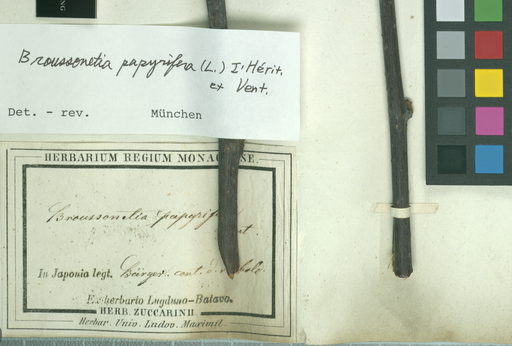 Broussonetia papyrifera (L.) l'Hérit.
ex Vent.
Det. - rev. München
HERBARIUM REGIUM MONACENSE.
Broussonetia papyrif
In Japonia legt. Bürger
Ex herbario Lugduno-Batavo.
HERB. ZUCCARINII
Herbar. Univ. Ludov. Maximil.